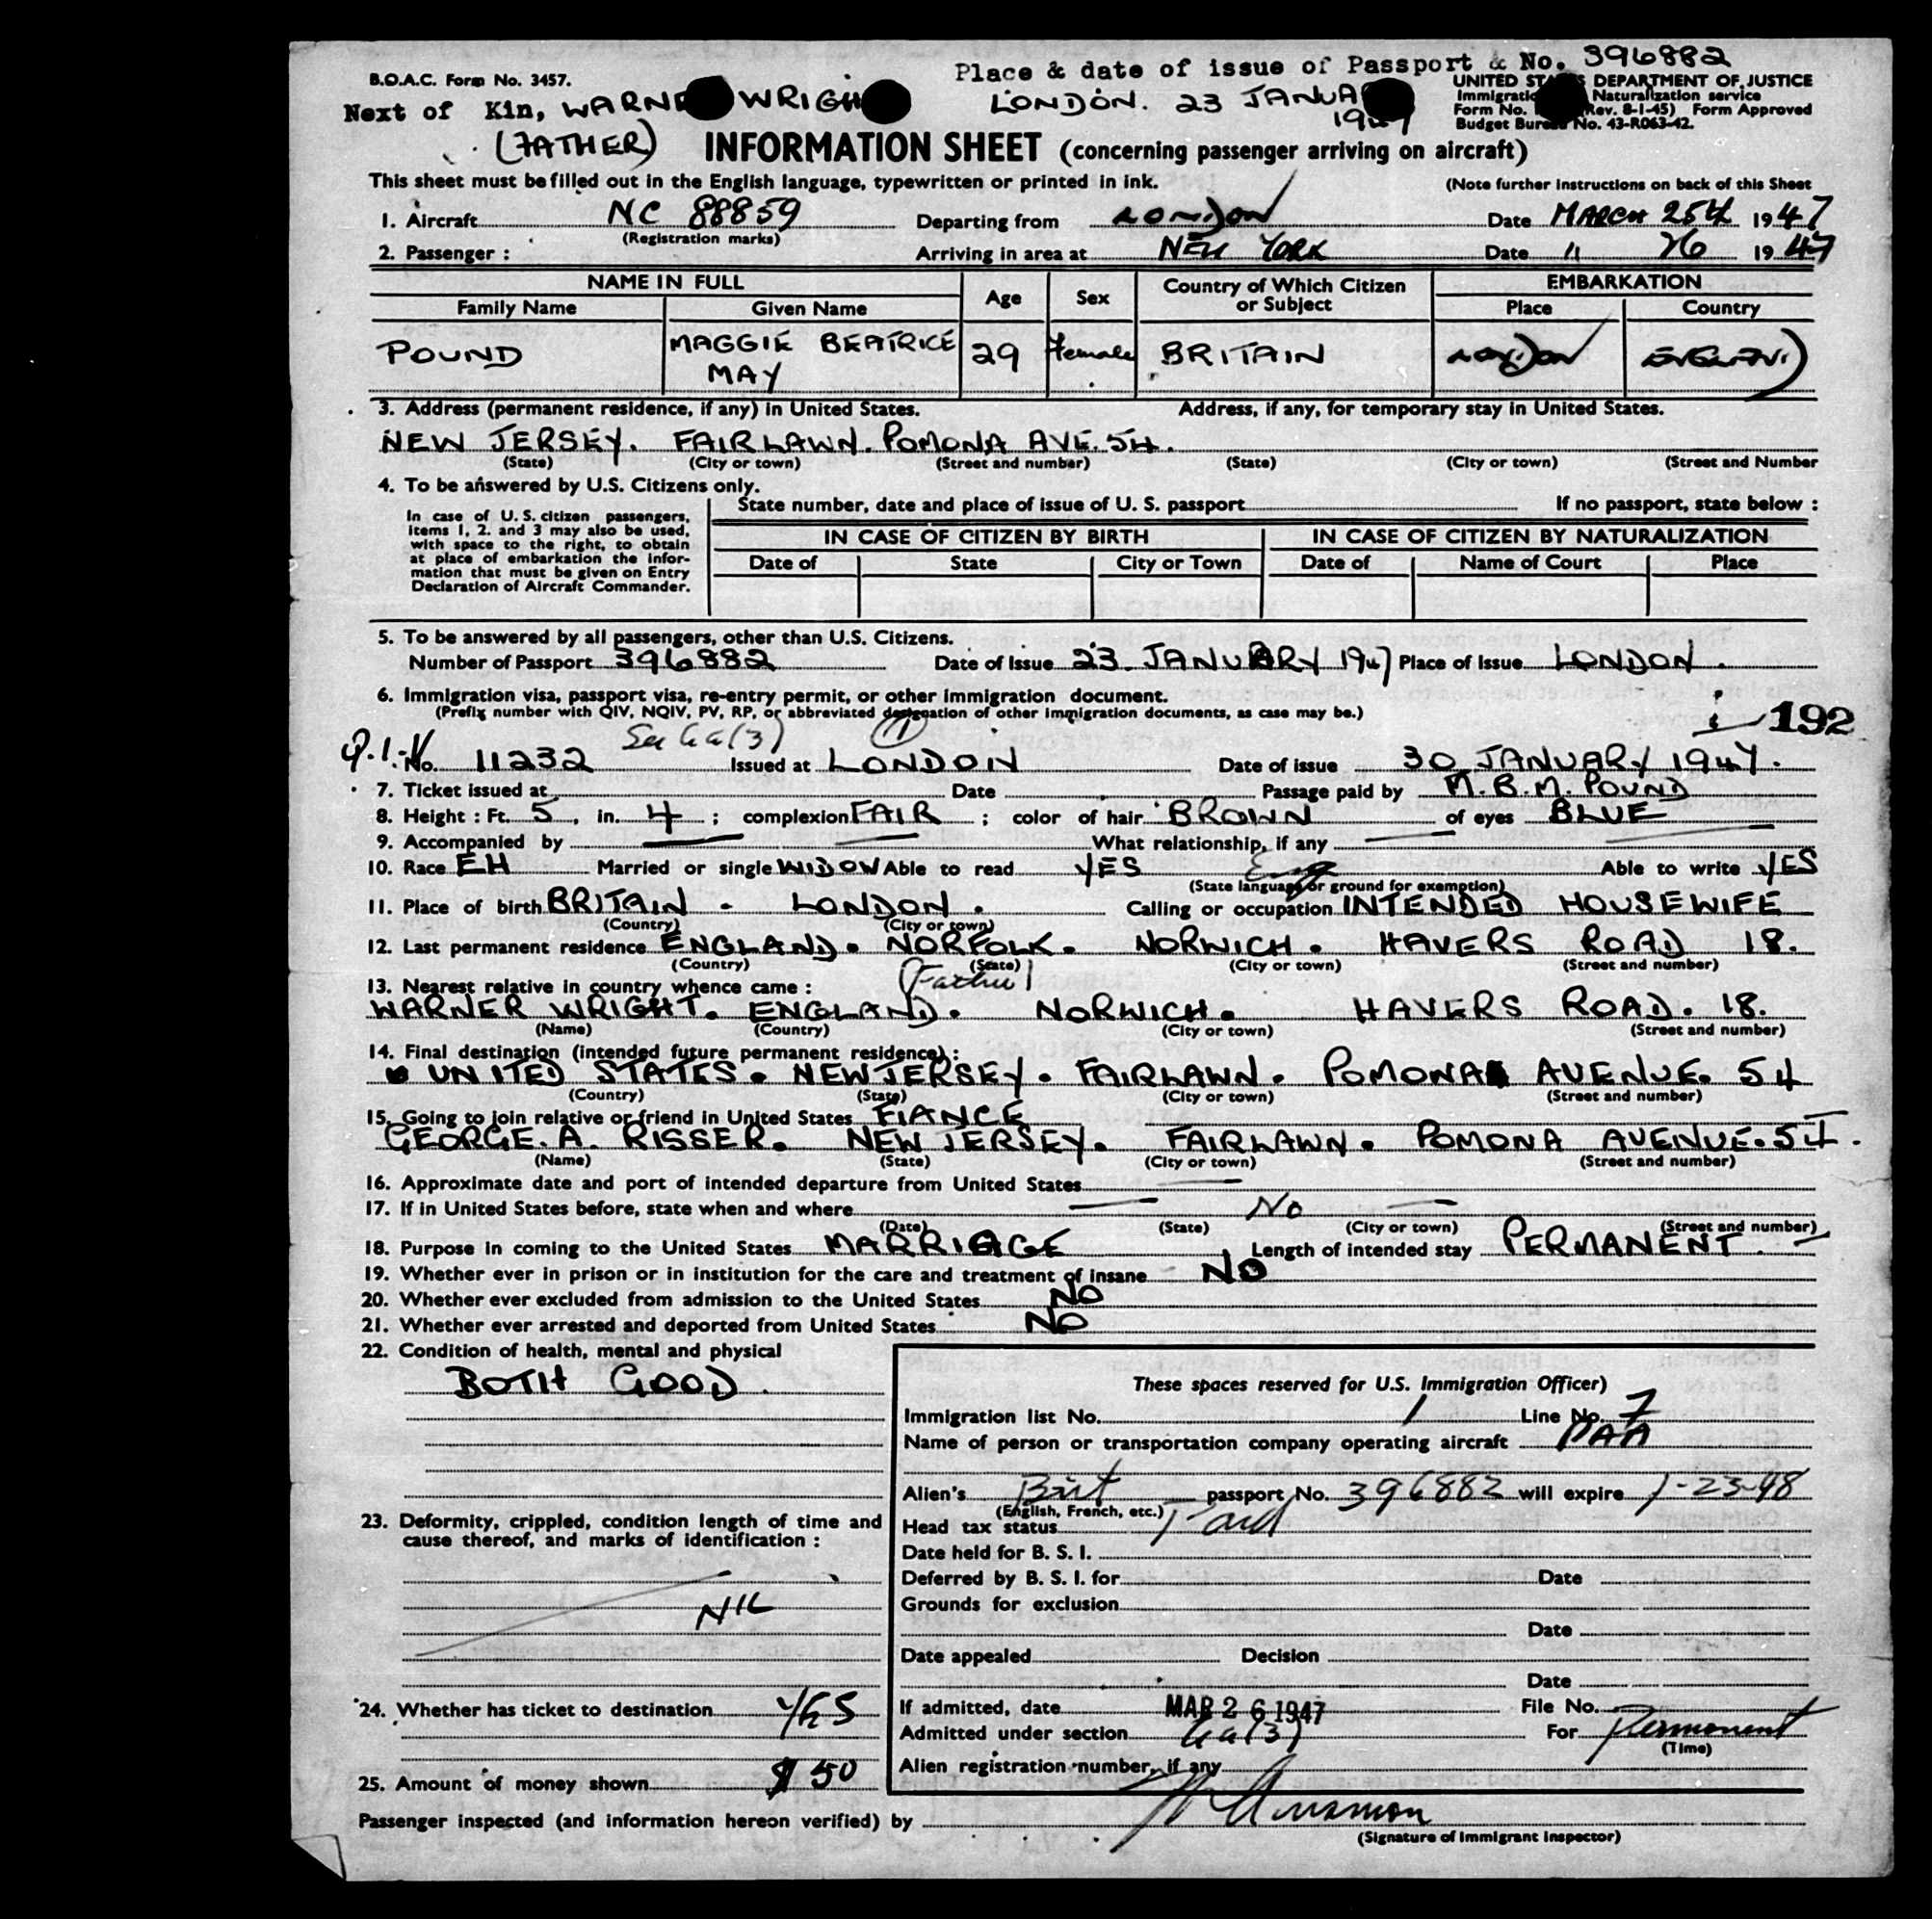 Place & date of issue of Passport & No. 396882
B.O.A.C. Form No. 3457.
UNITED STATES DEPARTMENT OF JUSTICE
Next of Kin, WARNER WRIGHT
LONDON. 23 JANUA
1947
Immigration Naturalization service
Form No. (Rev. 8-1-45) Form Approved
Budget Bureau No. 43-R063-42.
(FATHER)
INFORMATION SHEET (concerning passenger arriving on aircraft)
This sheet must be filled out in the English language, typewritten or printed in ink.
(Note further instructions on back of this Sheet
1. Aircraft NC 88859 Departing from LONDON Date MARCH 25th 1947
(Registration marks)
2. Passenger : Arriving in area at NEW YORK Date 11 26 1947
NAME IN FULL Age Sex Country of Which Citizen or Subject EMBARKATION
Family Name Given Name Place Country
POUND MAGGIE BEATRICE MAY 29 Female BRITAIN LONDON ENGLAND
3. Address (permanent residence, if any) in United States. Address, if any, for temporary stay in United States.
NEW JERSEY. FAIRLAWN. POMONA AVE. 54.
(State) (City or town) (Street and number) (State) (City or town) (Street and Number
4. To be answered by U.S. Citizens only.
State number, date and place of issue of U. S. passport If no passport, state below :
In case of U. S. citizen passengers,
items 1, 2. and 3 may also be used,
with space to the right, to obtain
at place of embarkation the infor-
mation that must be given on Entry
Declaration of Aircraft Commander.
IN CASE OF CITIZEN BY BIRTH IN CASE OF CITIZEN BY NATURALIZATION
Date of State City or Town Date of Name of Court Place
5. To be answered by all passengers, other than U.S. Citizens.
Number of Passport 396882 Date of Issue 23. JANUARY 1947 Place of Issue LONDON.
6. Immigration visa, passport visa, re-entry permit, or other immigration document.
(Prefix number with QIV, NQIV, PV, RP, or abbreviated designation of other immigration documents, as case may be.)
192
See 6a(3) (1)
Q.I.V. No. 11232 Issued at LONDON Date of issue 30 JANUARY 1947.
7. Ticket issued at Date Passage paid by M.B.M. POUND
8. Height : Ft. 5, in. 4 ; complexion FAIR ; color of hair BROWN of eyes BLUE
9. Accompanied by What relationship, if any
10. Race EH Married or single WIDOW Able to read YES Eng Able to write YES
(State language or ground for exemption)
11. Place of birth BRITAIN - LONDON. Calling or occupation INTENDED HOUSEWIFE
(Country) (City or town)
12. Last permanent residence ENGLAND. NORFOLK. NORWICH. HAVERS ROAD 18.
(Country) (State) (City or town) (Street and number)
13. Nearest relative in country whence came : (Father)
WARNER WRIGHT. ENGLAND. NORWICH. HAVERS ROAD. 18.
(Name) (Country) (City or town) (Street and number)
14. Final destination (intended future permanent residence) :
UNITED STATES. NEW JERSEY. FAIRLAWN. POMONA AVENUE. 54
(Country) (State) (City or town) (Street and number)
15. Going to join relative or friend in United States FIANCE
GEORGE. A. RISSER. NEW JERSEY. FAIRLAWN. POMONA AVENUE. 54.
(Name) (State) (City or town) (Street and number)
16. Approximate date and port of intended departure from United States
17. If in United States before, state when and where No
(Date) (State) (City or town) (Street and number)
18. Purpose in coming to the United States MARRIAGE Length of intended stay PERMANENT.
19. Whether ever in prison or in institution for the care and treatment of insane NO
20. Whether ever excluded from admission to the United States NO
21. Whether ever arrested and deported from United States NO
22. Condition of health, mental and physical
BOTH GOOD.
23. Deformity, crippled, condition length of time and
cause thereof, and marks of identification :
NIL
24. Whether has ticket to destination YES
25. Amount of money shown $ 50
These spaces reserved for U.S. Immigration Officer)
Immigration list No. 1 Line No. 7
Name of person or transportation company operating aircraft PAA
Alien's Brit passport No. 396882 will expire 1-23-48
(English, French, etc.)
Head tax status Paid
Date held for B. S. I.
Deferred by B. S. I. for Date
Grounds for exclusion
Date
Date appealed Decision
Date
If admitted, date MAR 26 1947 File No.
Admitted under section 6a(3) For Permanent
(Time)
Alien registration number, if any
Passenger inspected (and information hereon verified) by
(Signature of Immigrant Inspector)